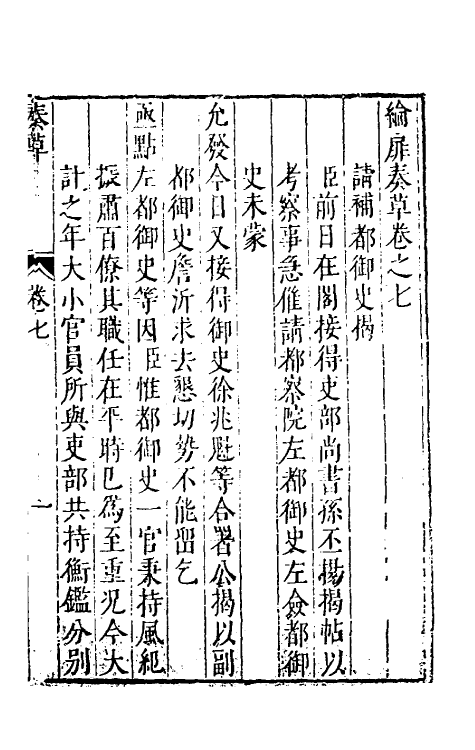 綸扉奏草卷之七
請補都御史揭
臣前日在閣接得吏部尚書孫丕揚揭帖以
考察事急催請都察院左都御史左僉都御
史未蒙
允發今日又接得御史徐兆魁等合署公揭以副
都御史詹沂求去懇切勢不能留乞
亟點左都御史等因臣惟都御史一官秉持風紀
振肅百僚其職任在平時已為至重況今大
計之年大小官員所與吏部共持衡鑑分別
奏草
卷七
一